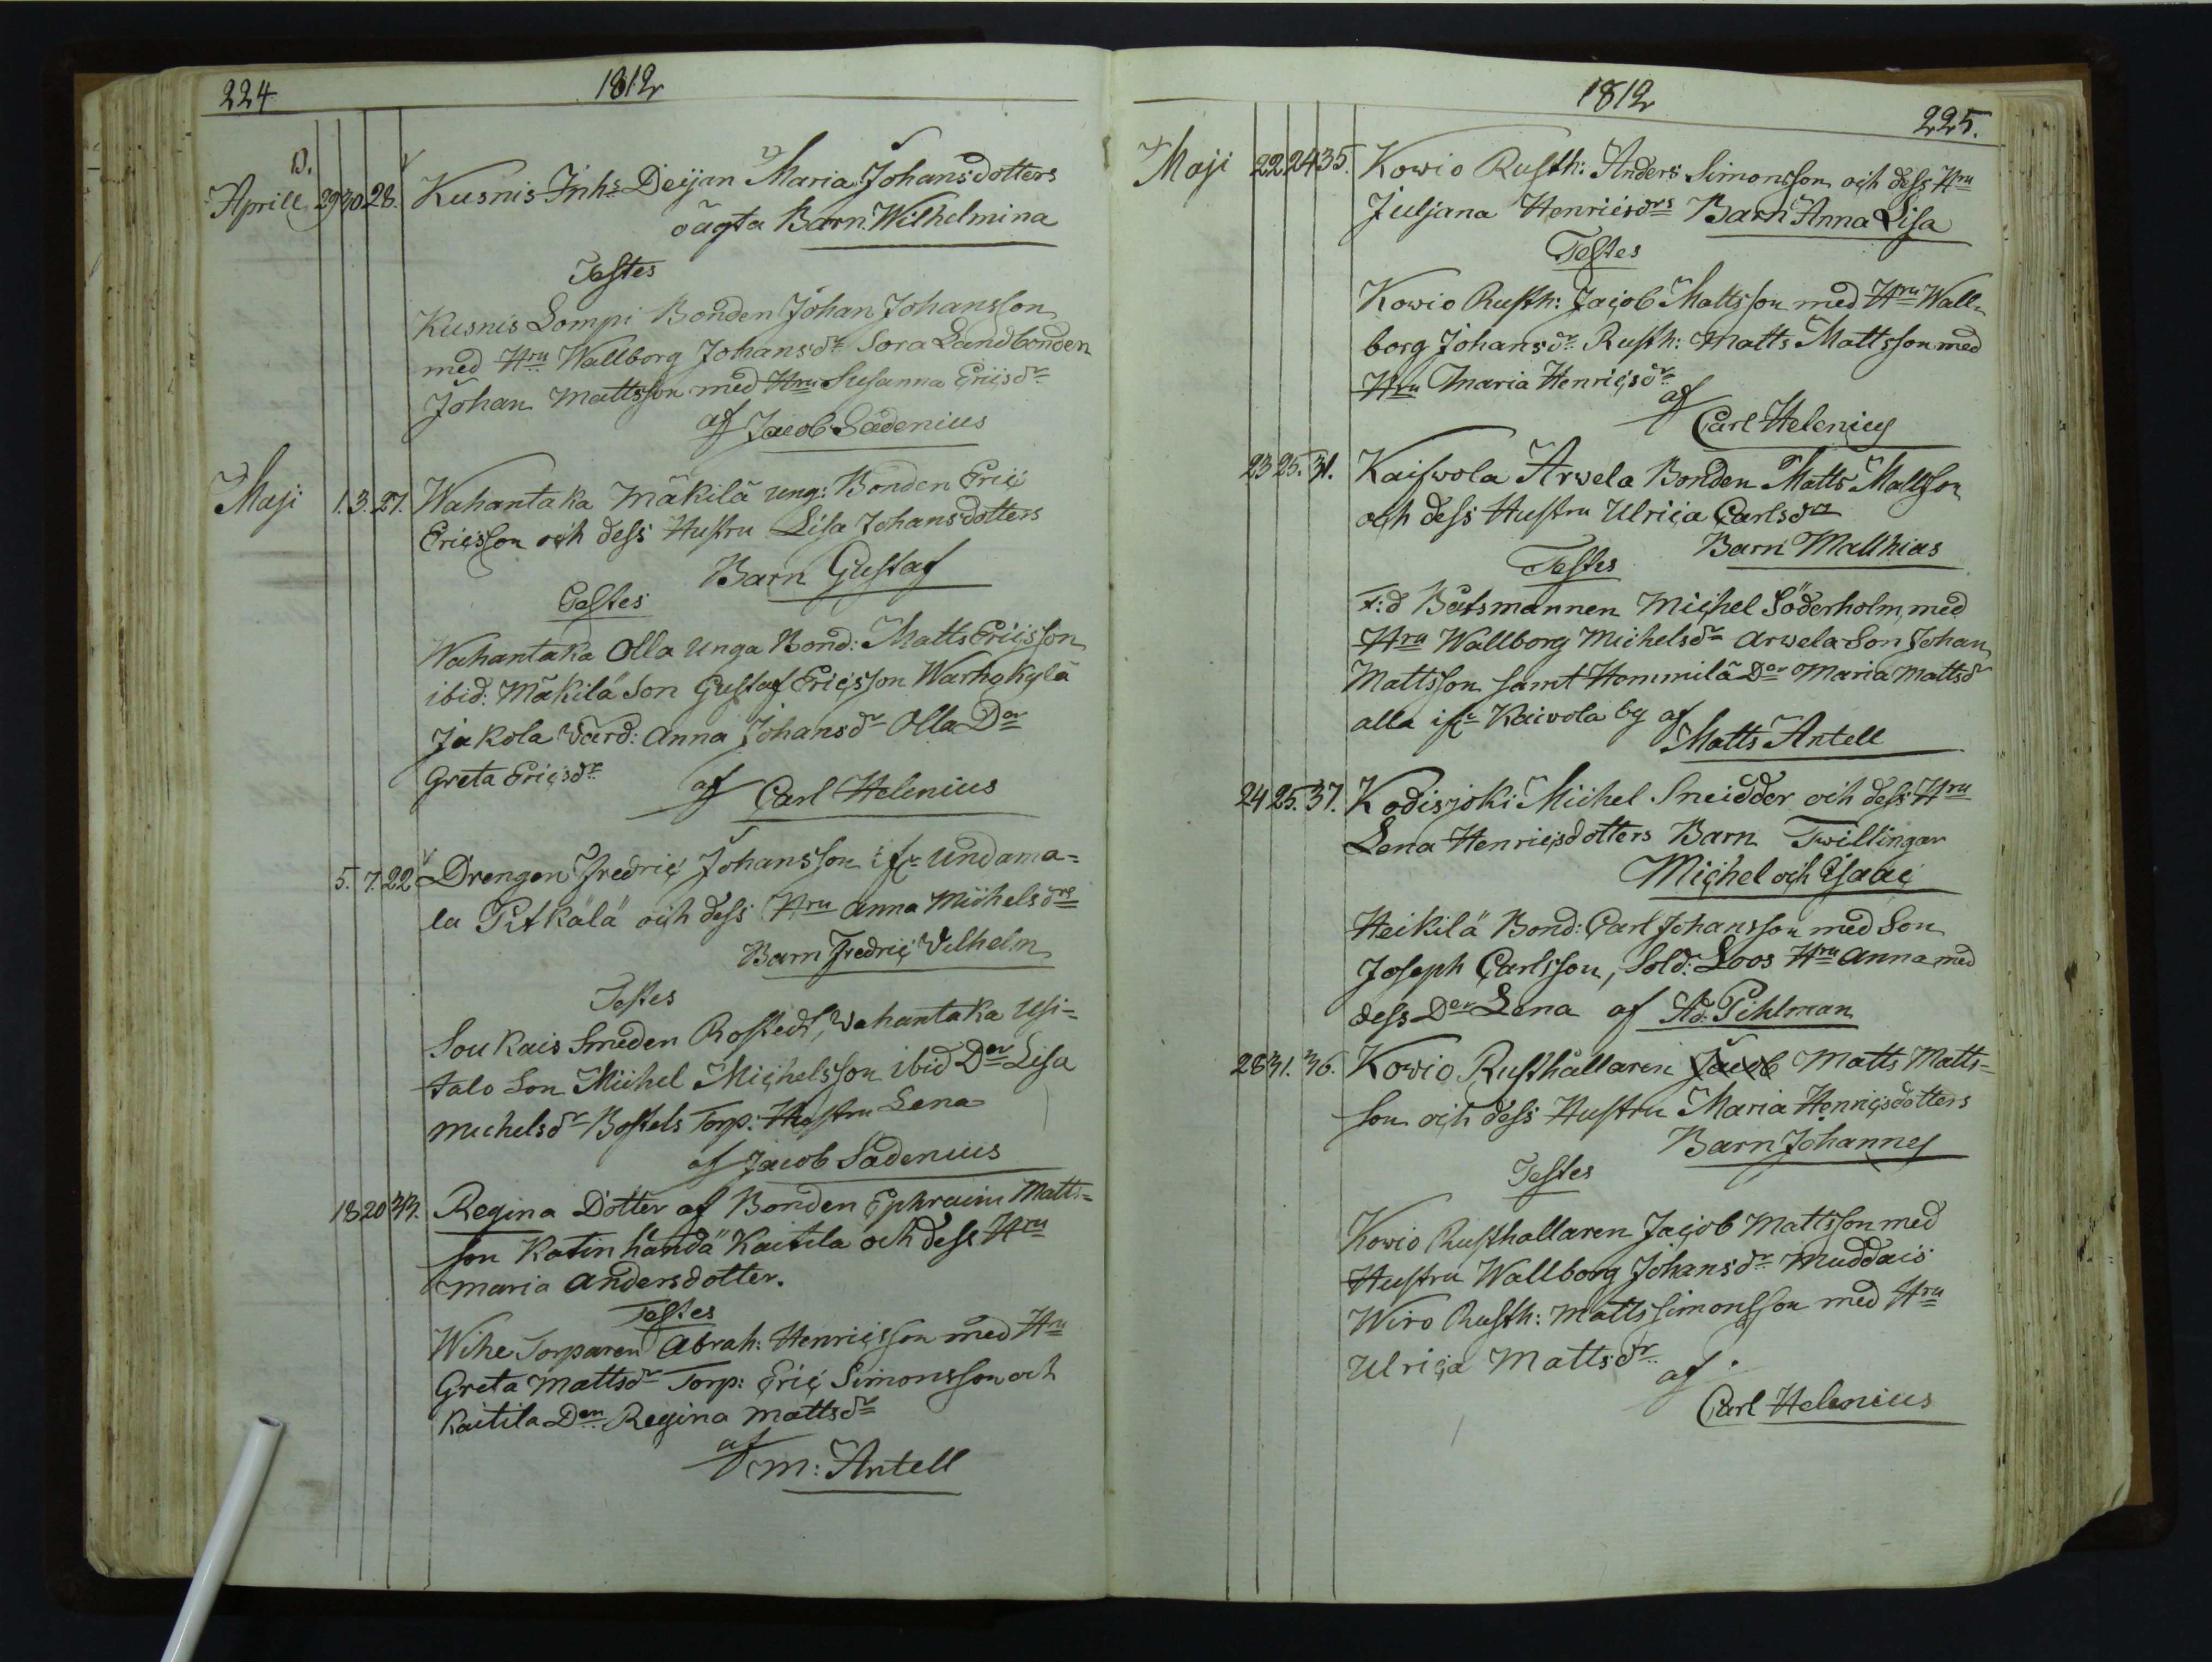 224
1812
D.
Aprill 29 30 28. Kusnis Inhs Deijan Maria Johansdotters
oägta Barn Wilhelmina
Testes
Kusnis Lompi Bonden Johan Johansson
med Hru Wallborg Johansdr Sora Landbonden
Johan Mattsson med Hru Susanna Ericsdr
af Jacob Sadenius
Maji 1. 3. 27. Wahantaka Mäkilä ung: Bonden Eric
Ericsson och dess Hustru Lisa Johansdotters
Barn Gustaf
Testes
Wahantaka Olla Unga Bond: Matts Ericsson
ibid. Mäkilä Son Gustaf Ericsson Warhokylä
Jakola Värd: Anna Johansdr Olla Dor
Greta Ericsdr
af Carl Helenius
5. 7. 22 Drengen Fredric Johansson ifr. Undama=
la Pitkälä och dess Hru Anna Michelsdrs
Barn Fredric Vilhelm
Testes
Soukais Smeden Rostedt, Wahantaka Usi=
talo Son Michel Michelsson ibid Dor Lisa
Michelsdr Bostels Torp: Hustru Lena
af Jacob Sadenius
18 20 33. Regina Dotter af Bonden Ephraim Matts=
son Katinhändä Kaitila och dess Hru
Maria Andersdotter.
Testes
Wihe Torparen Abrah: Henricsson med Hru
Greta Mattsdr Torp: Eric Simonsson och
Kaitila Den Regina Mattsdr
af M: Antell
1812
225.
Maji 22 24 35. Kowio Rusth: Anders Simonsson och dess Hru
Juljana Henricsdrs Barn Anna Lisa
Testes
Kowio Rusth: Jacob Mattsson med Hru Wall=
borg Johansdr. Rusth: Matts Mattsson med
Hru Maria Henricsdr.
af
Carl Helenius
23 25. 31. Kaiswola Arwela Bonden Matts Mattson
och dess Hustru Ulrica Carlsdrs
Barn Matthias
Testes
F:d Båtsmannen Michel Söderholm, med
Hru Wallborg Michelsdr Arwela Son Johan
Mattsson samt Hommilä Dor Maria Mattsdr
alla ifr Kaivola by af
Matts Antell
24 25. 37. Kodisjoki Michel Sneidder och dess Hru
Lena Henricsdotters Barn Twillingar
Michel och Esaac
Heikilä Bond: Carl Johansson med Son
Joseph Carlsson, Sold: Loos Hru Anna med
dess Der Lena af Ad. Pihlman
28 31. 36. Kowio Rusthållaren Jacob Matts Matts=
son och dess Hustru Maria Henricsdotters
Barn Johannes
Testes
Kowio Rusthållaren Jacob Mattsson med
Hustru Wallborg Johansdr Muddais
Wiro Rusth: Matts Simonsson med Hru
Ulrica Mattsdr.
af
Carl Helenius